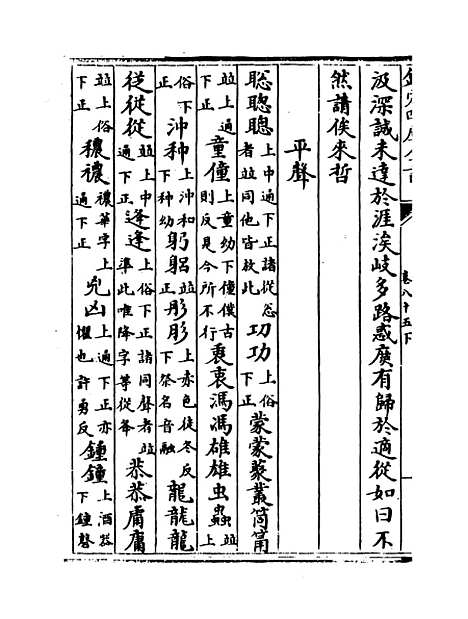 欽定四庫全書
卷八十五下
汲深誠未達於涯涘岐多路惑廣有歸於適從如曰不
然請俟來哲
平聲
聡聦聰上中通下正諸從怱者並同他皆放此功功上俗下正蒙蒙藂叢筒筩
並上通下正童僮上童幼下僮僕古則反是今所不行衷衷馮馮雄雄虫蟲並上
俗下正沖种上沖和下种幼躬躳並正彤肜上赤色徒冬反下祭名音融龍龍龍
従從從並上中通下正逢逢上俗下正諸同聲者並準此唯降字等從夅恭恭庸庸
並上俗下正穠襛襛華字上通下正兇凶上通下正亦懼也許勇反鍾鐘上酒器下鐘聲